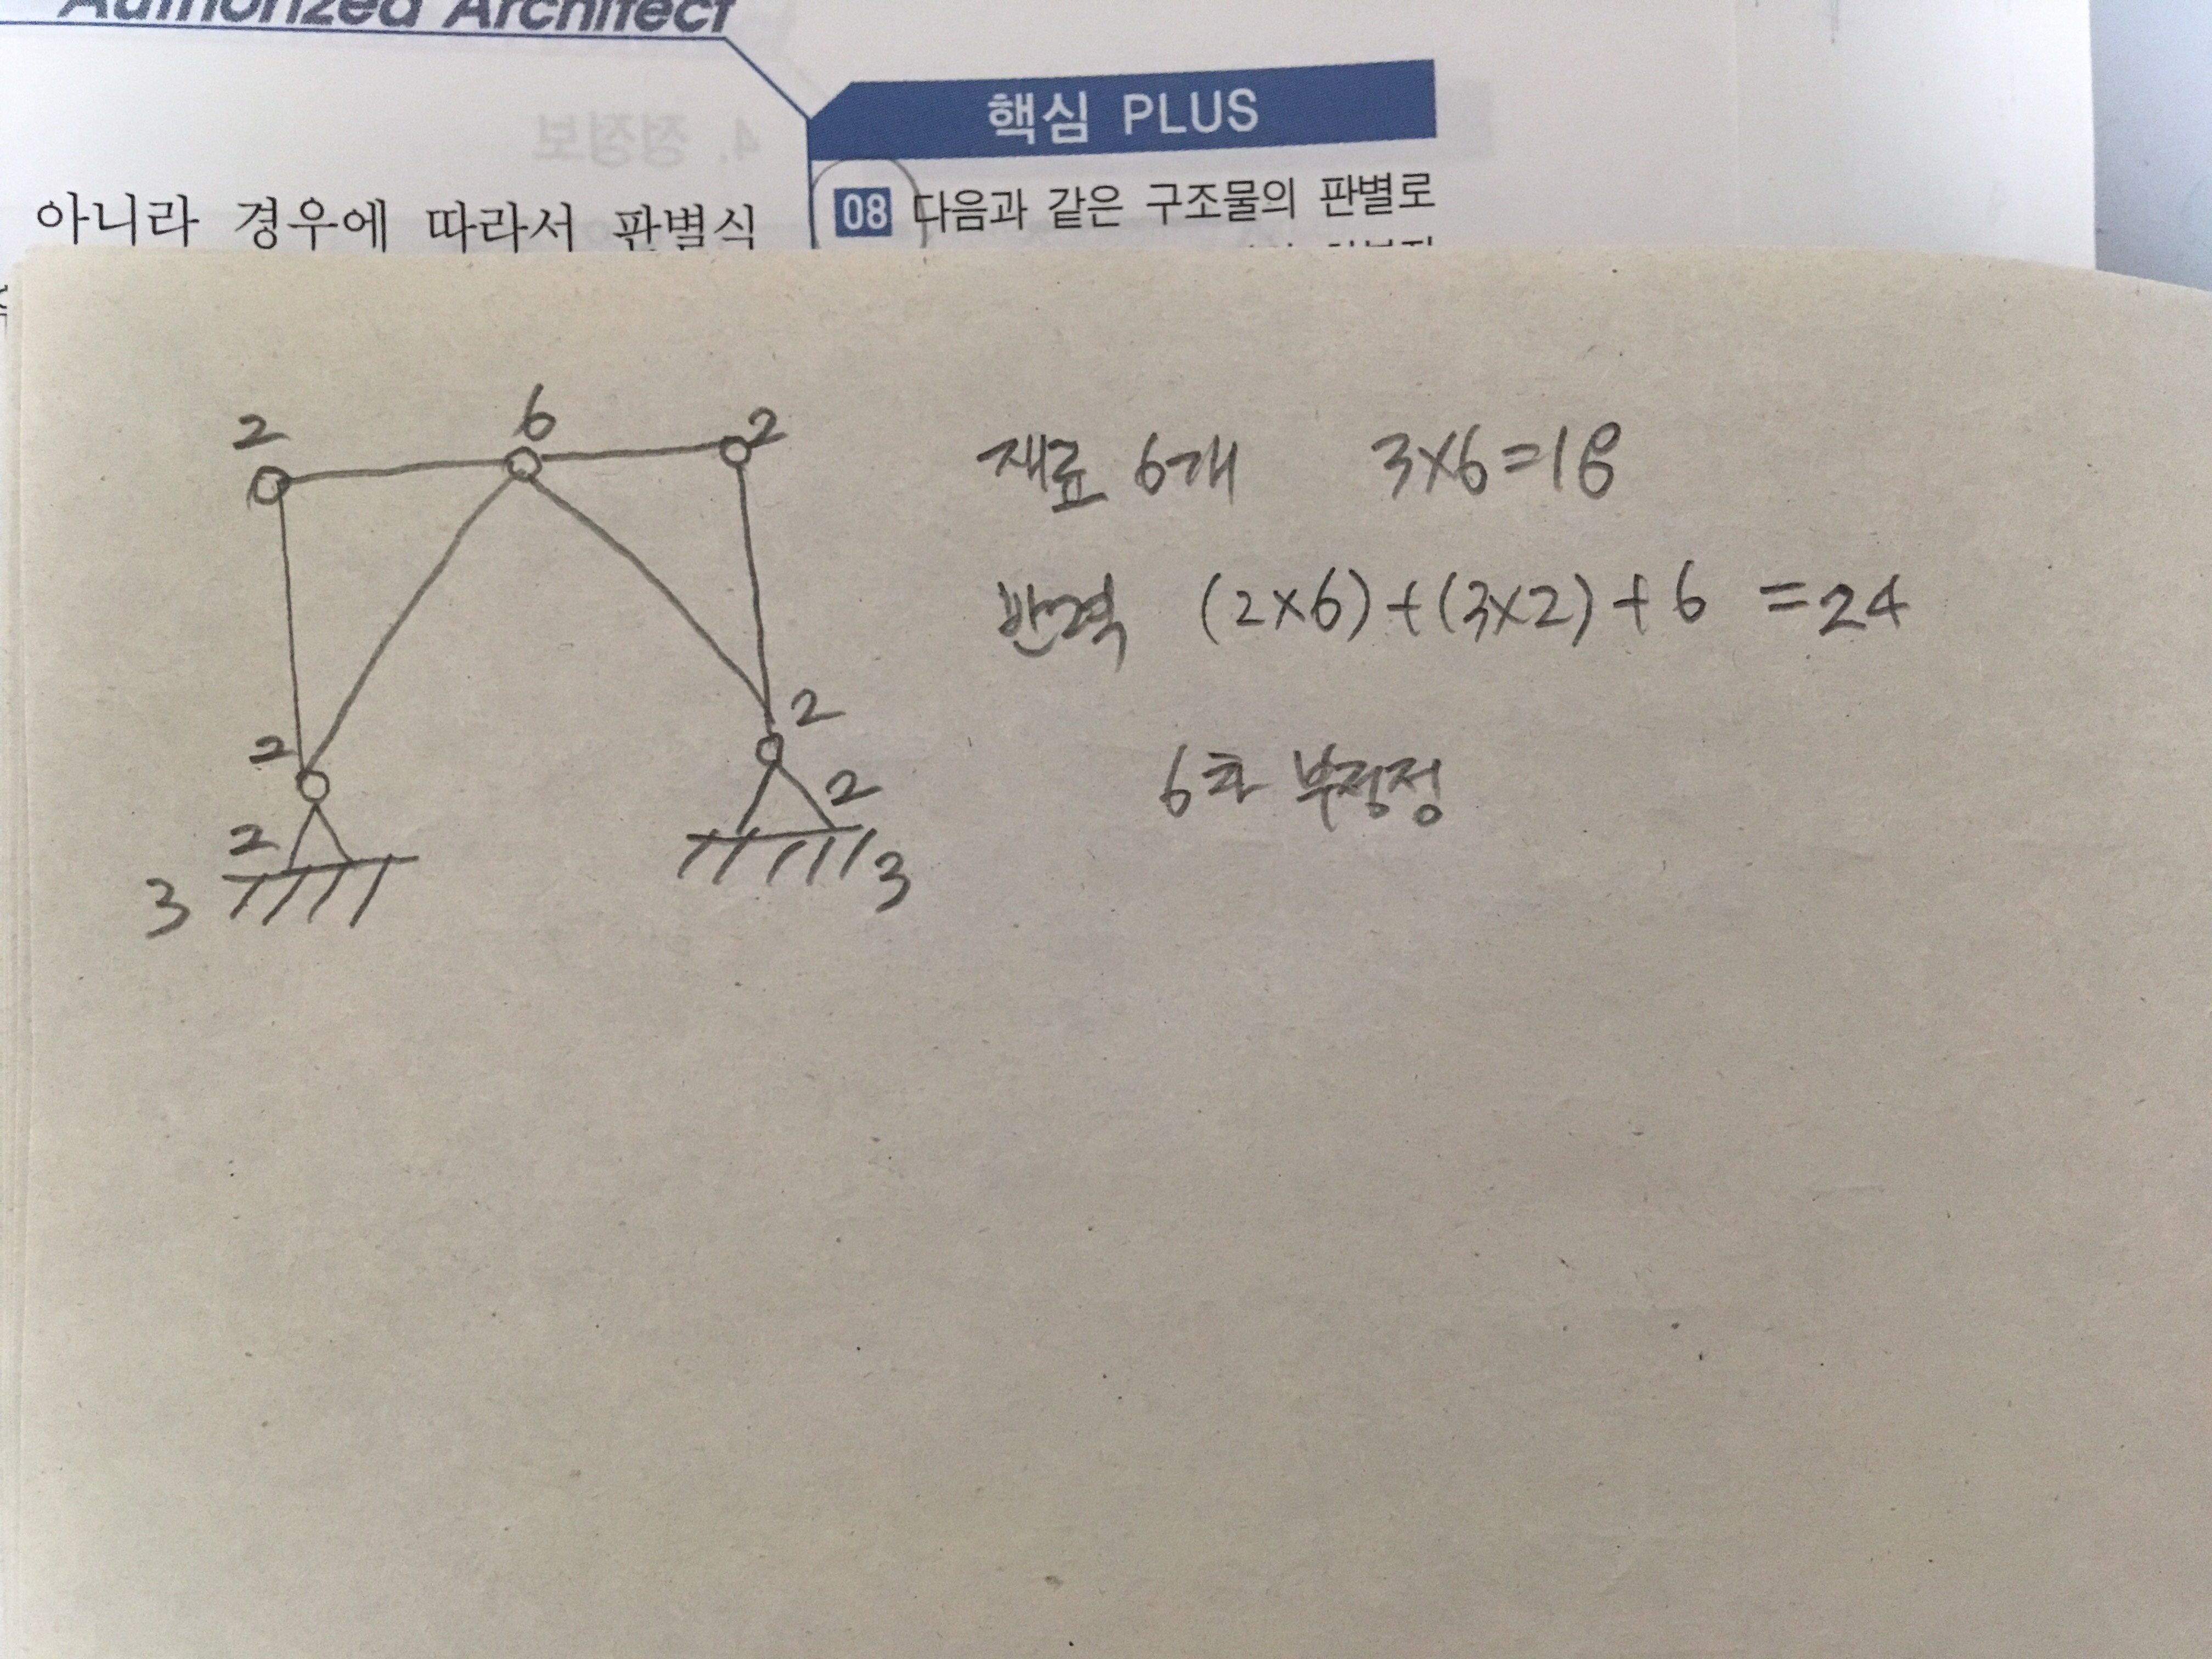 Authorized Architect
핵심 PLUS
아니라 경우에 따라서 판별식
08 다음과 같은 구조물의 판별로
2 6 2
재료 6개 3×6=18
반력 (2×6)+(3×2)+6 =24
2 2
6차 부정정
2 2
3 3